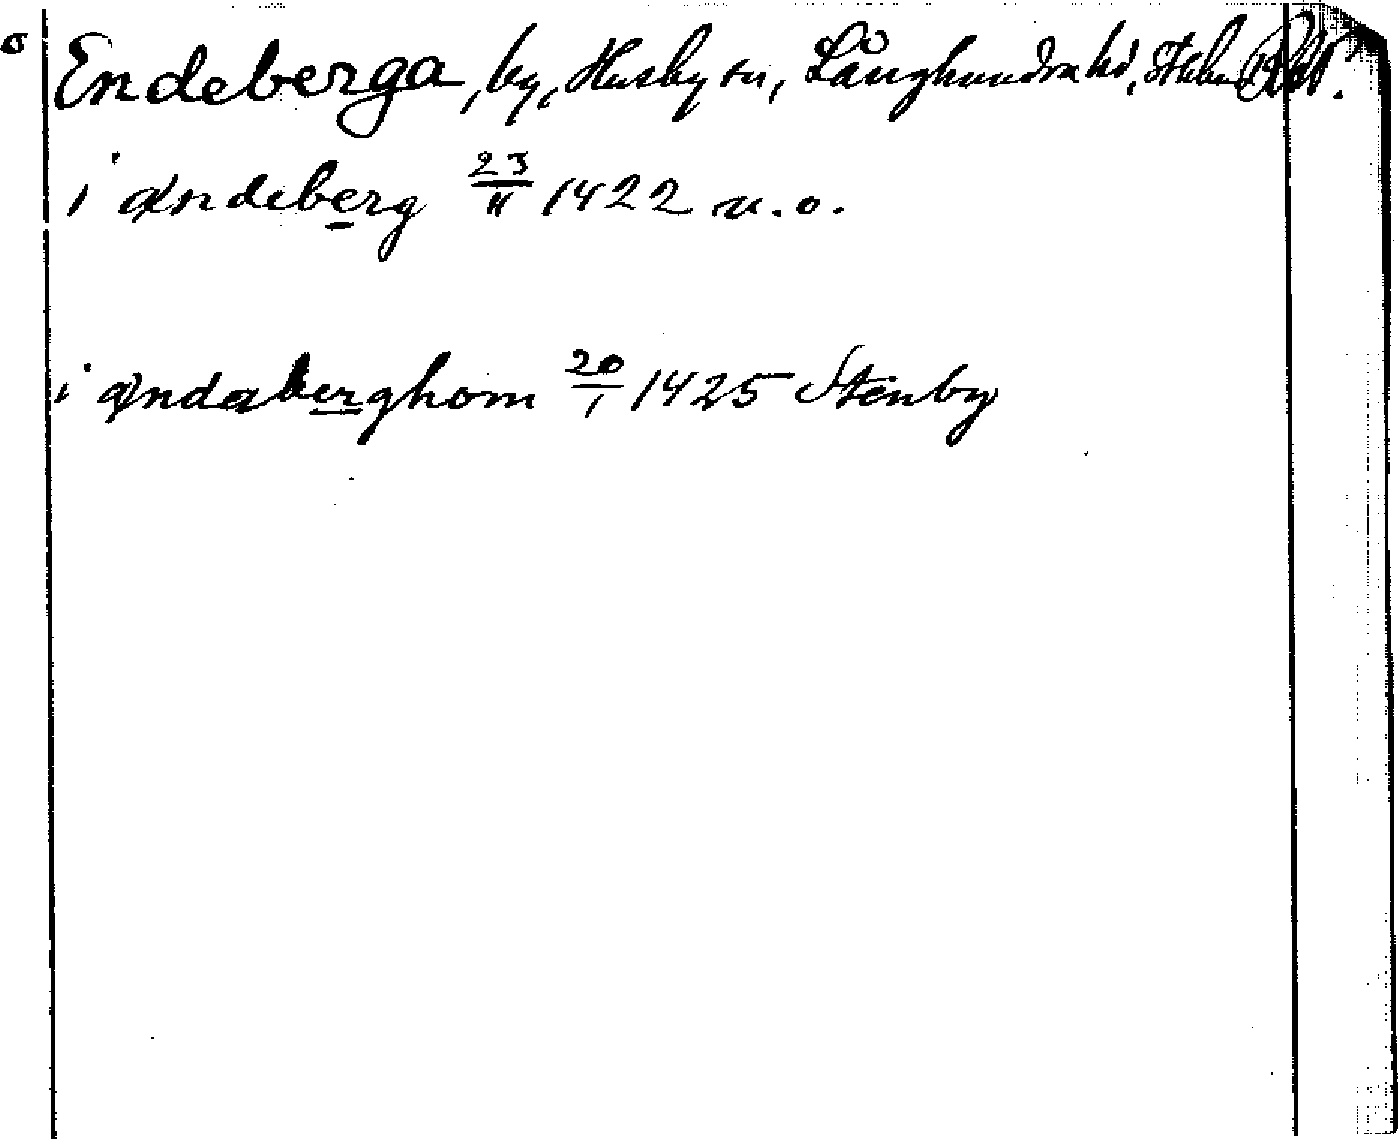 Endeberga, by, Husby sn, Långhundra hd, Sthms
i ændeberg 23/11 1422 u. o.
i ændaberghom 20/1 1425 Stenby